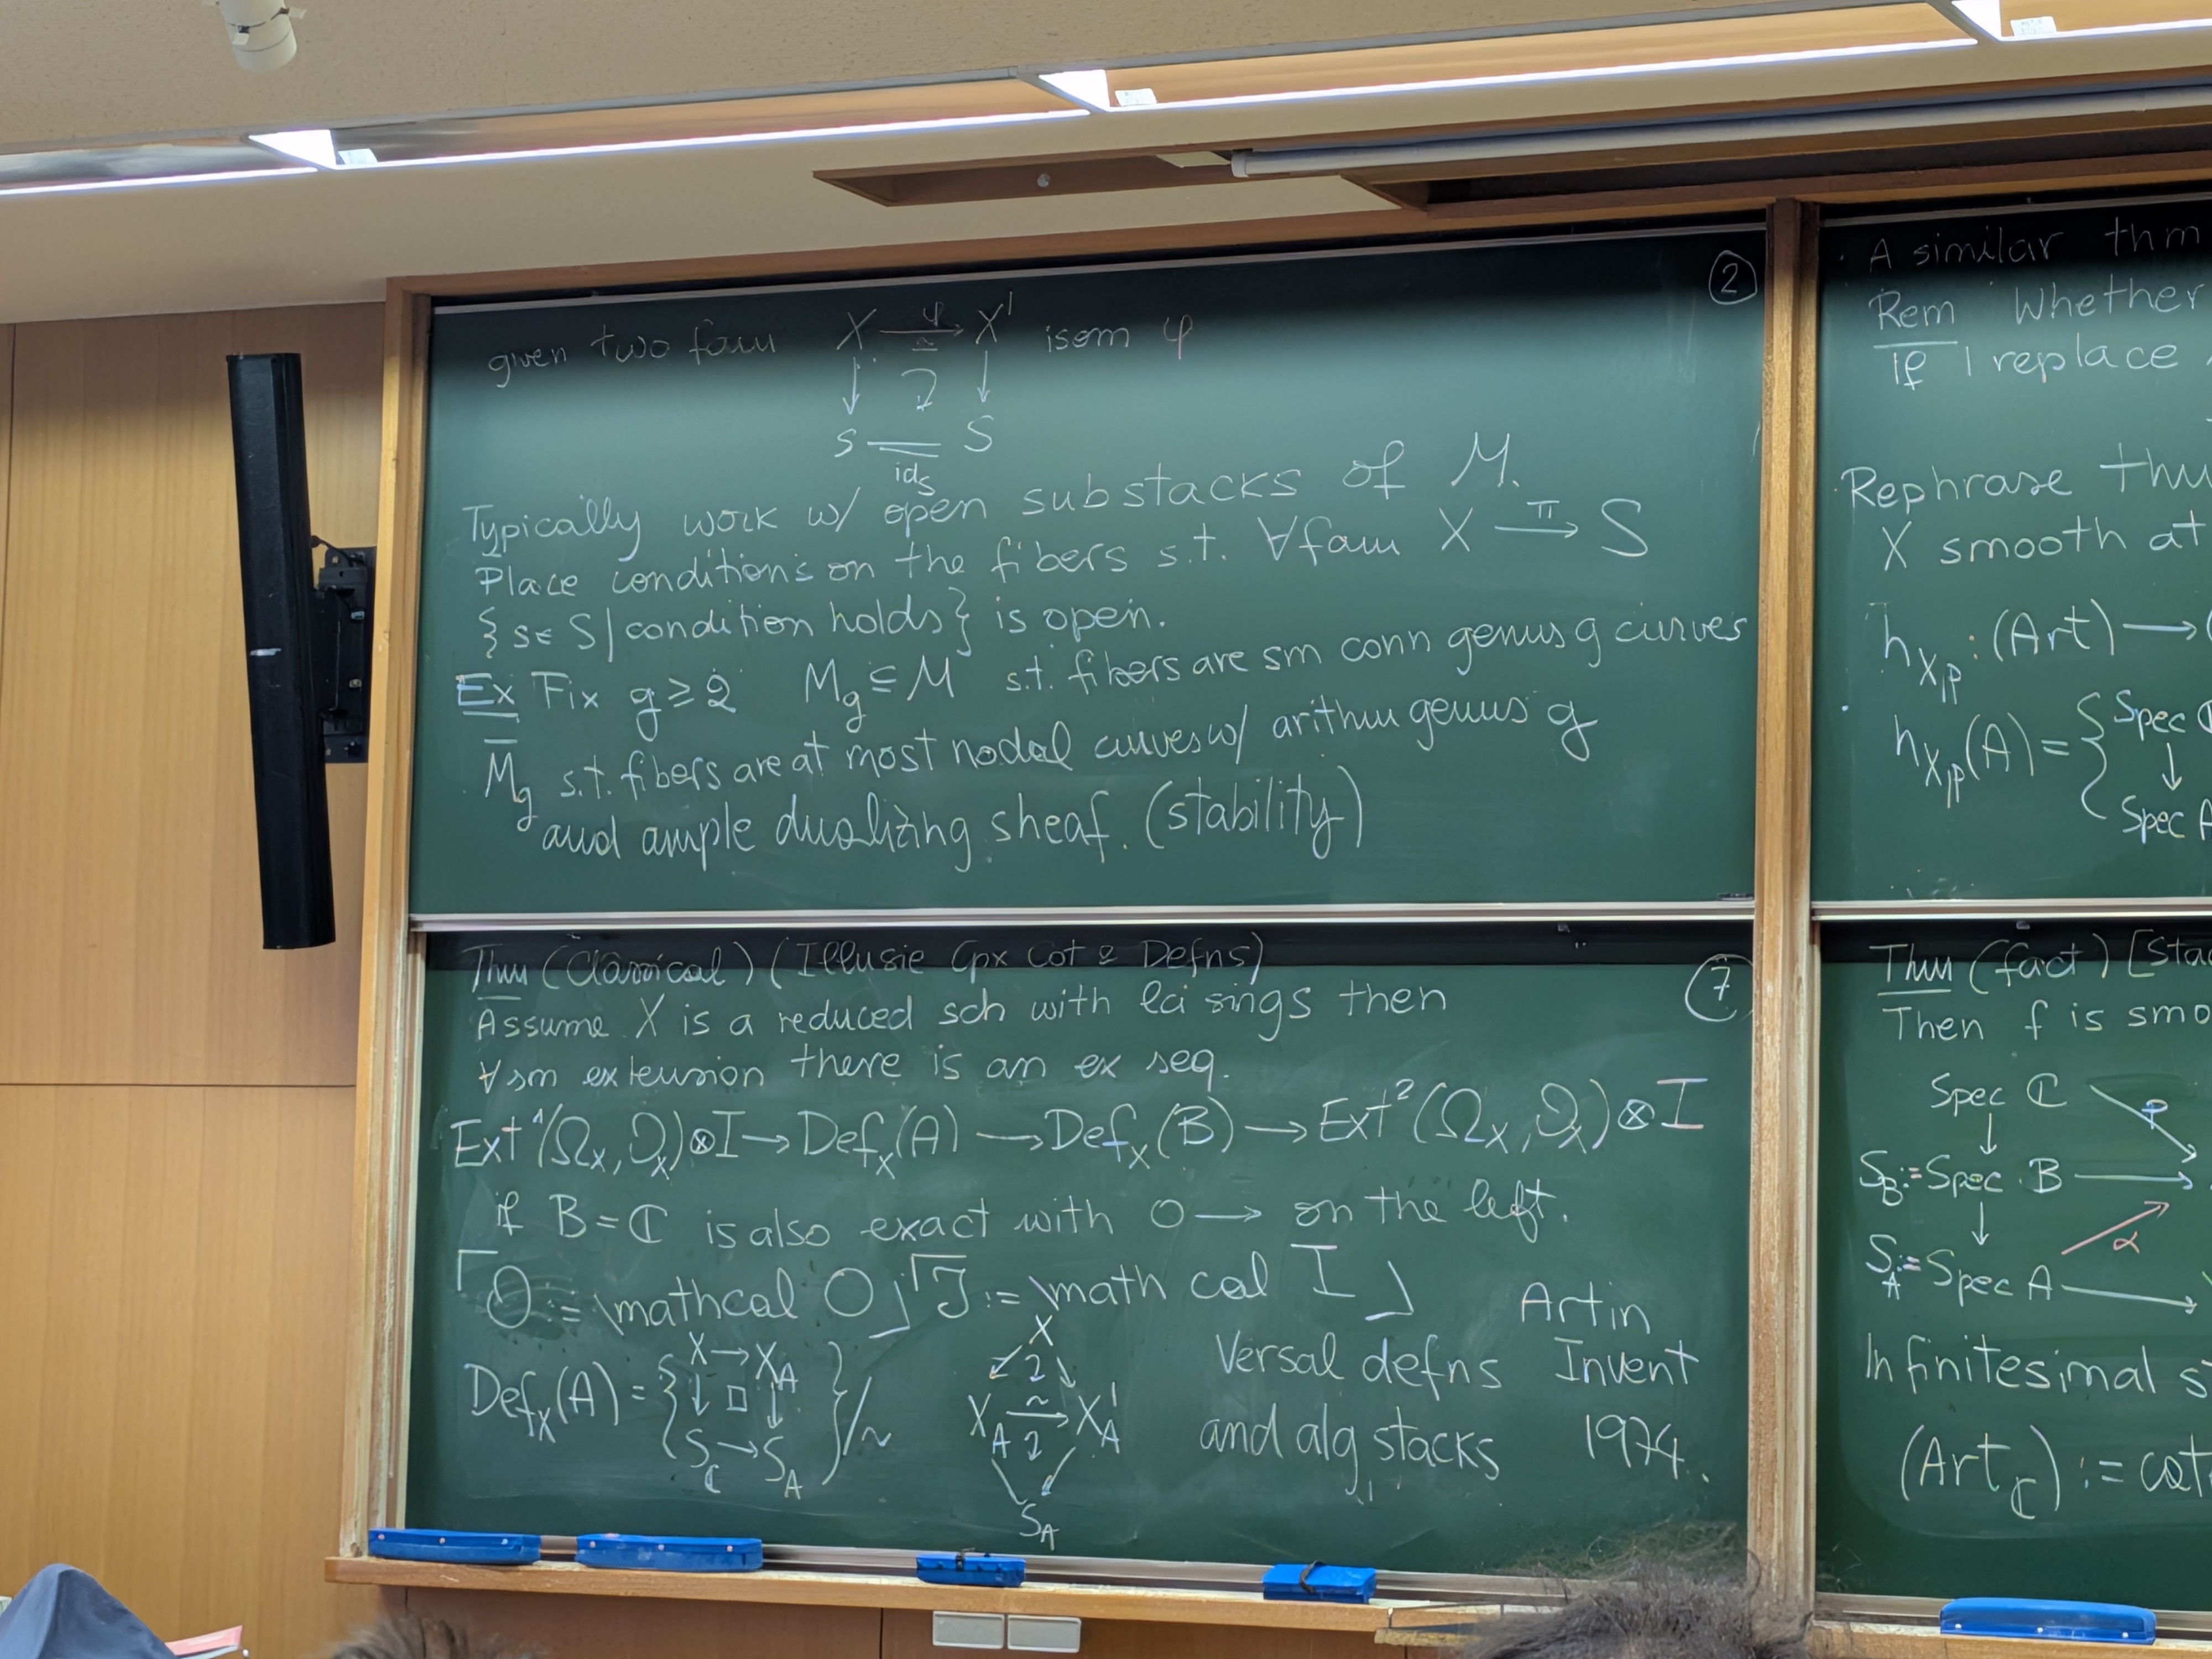 ②
given two fam X —φ→ X' isom φ
≃
↓ ↓
S == S
id_S
Typically work w/ open substacks of M.
Place conditions on the fibers s.t. ∀fam X —π→ S
{s∈ S | condition holds} is open.
Ex Fix g ≥ 2 M_g ⊆ M s.t. fibers are sm conn genus g curves
M̄_g s.t. fibers are at most nodal curves w/ arithm genus g
and ample dualizing sheaf. (stability)
⑦
Thm (Classical) (Illusie Cpx Cot & Defns)
Assume X is a reduced sch with lci sings then
∀ sm extension there is an ex seq.
Ext¹(Ω_X, 𝒪_X)⊗I → Def_X(A) → Def_X(B) → Ext²(Ω_X, 𝒪_X)⊗I
if B=ℂ is also exact with 0 → on the left.
⌈𝒪 := \mathcal O⌋ ⌈ℐ := \math cal I⌋
Def_X(A) = { X → X_A ↓ □ ↓ S_ℂ → S_A } / ~
X
X_A ≃→ X'_A
S_A
Versal defns
and alg stacks
Artin
Invent
1974.
A similar thm
Rem Whether
If I replace
Rephrase thm
X smooth at
h_{X,p} : (Art) → (
h_{X,p}(A) = { Spec ℂ
↓
Spec A
Thm (fact) [Stac
Then f is smo
Spec ℂ
↓ p
S_B := Spec B →
↓ α
S_A := Spec A →
Infinitesimal s
(Art_ℂ) := cat